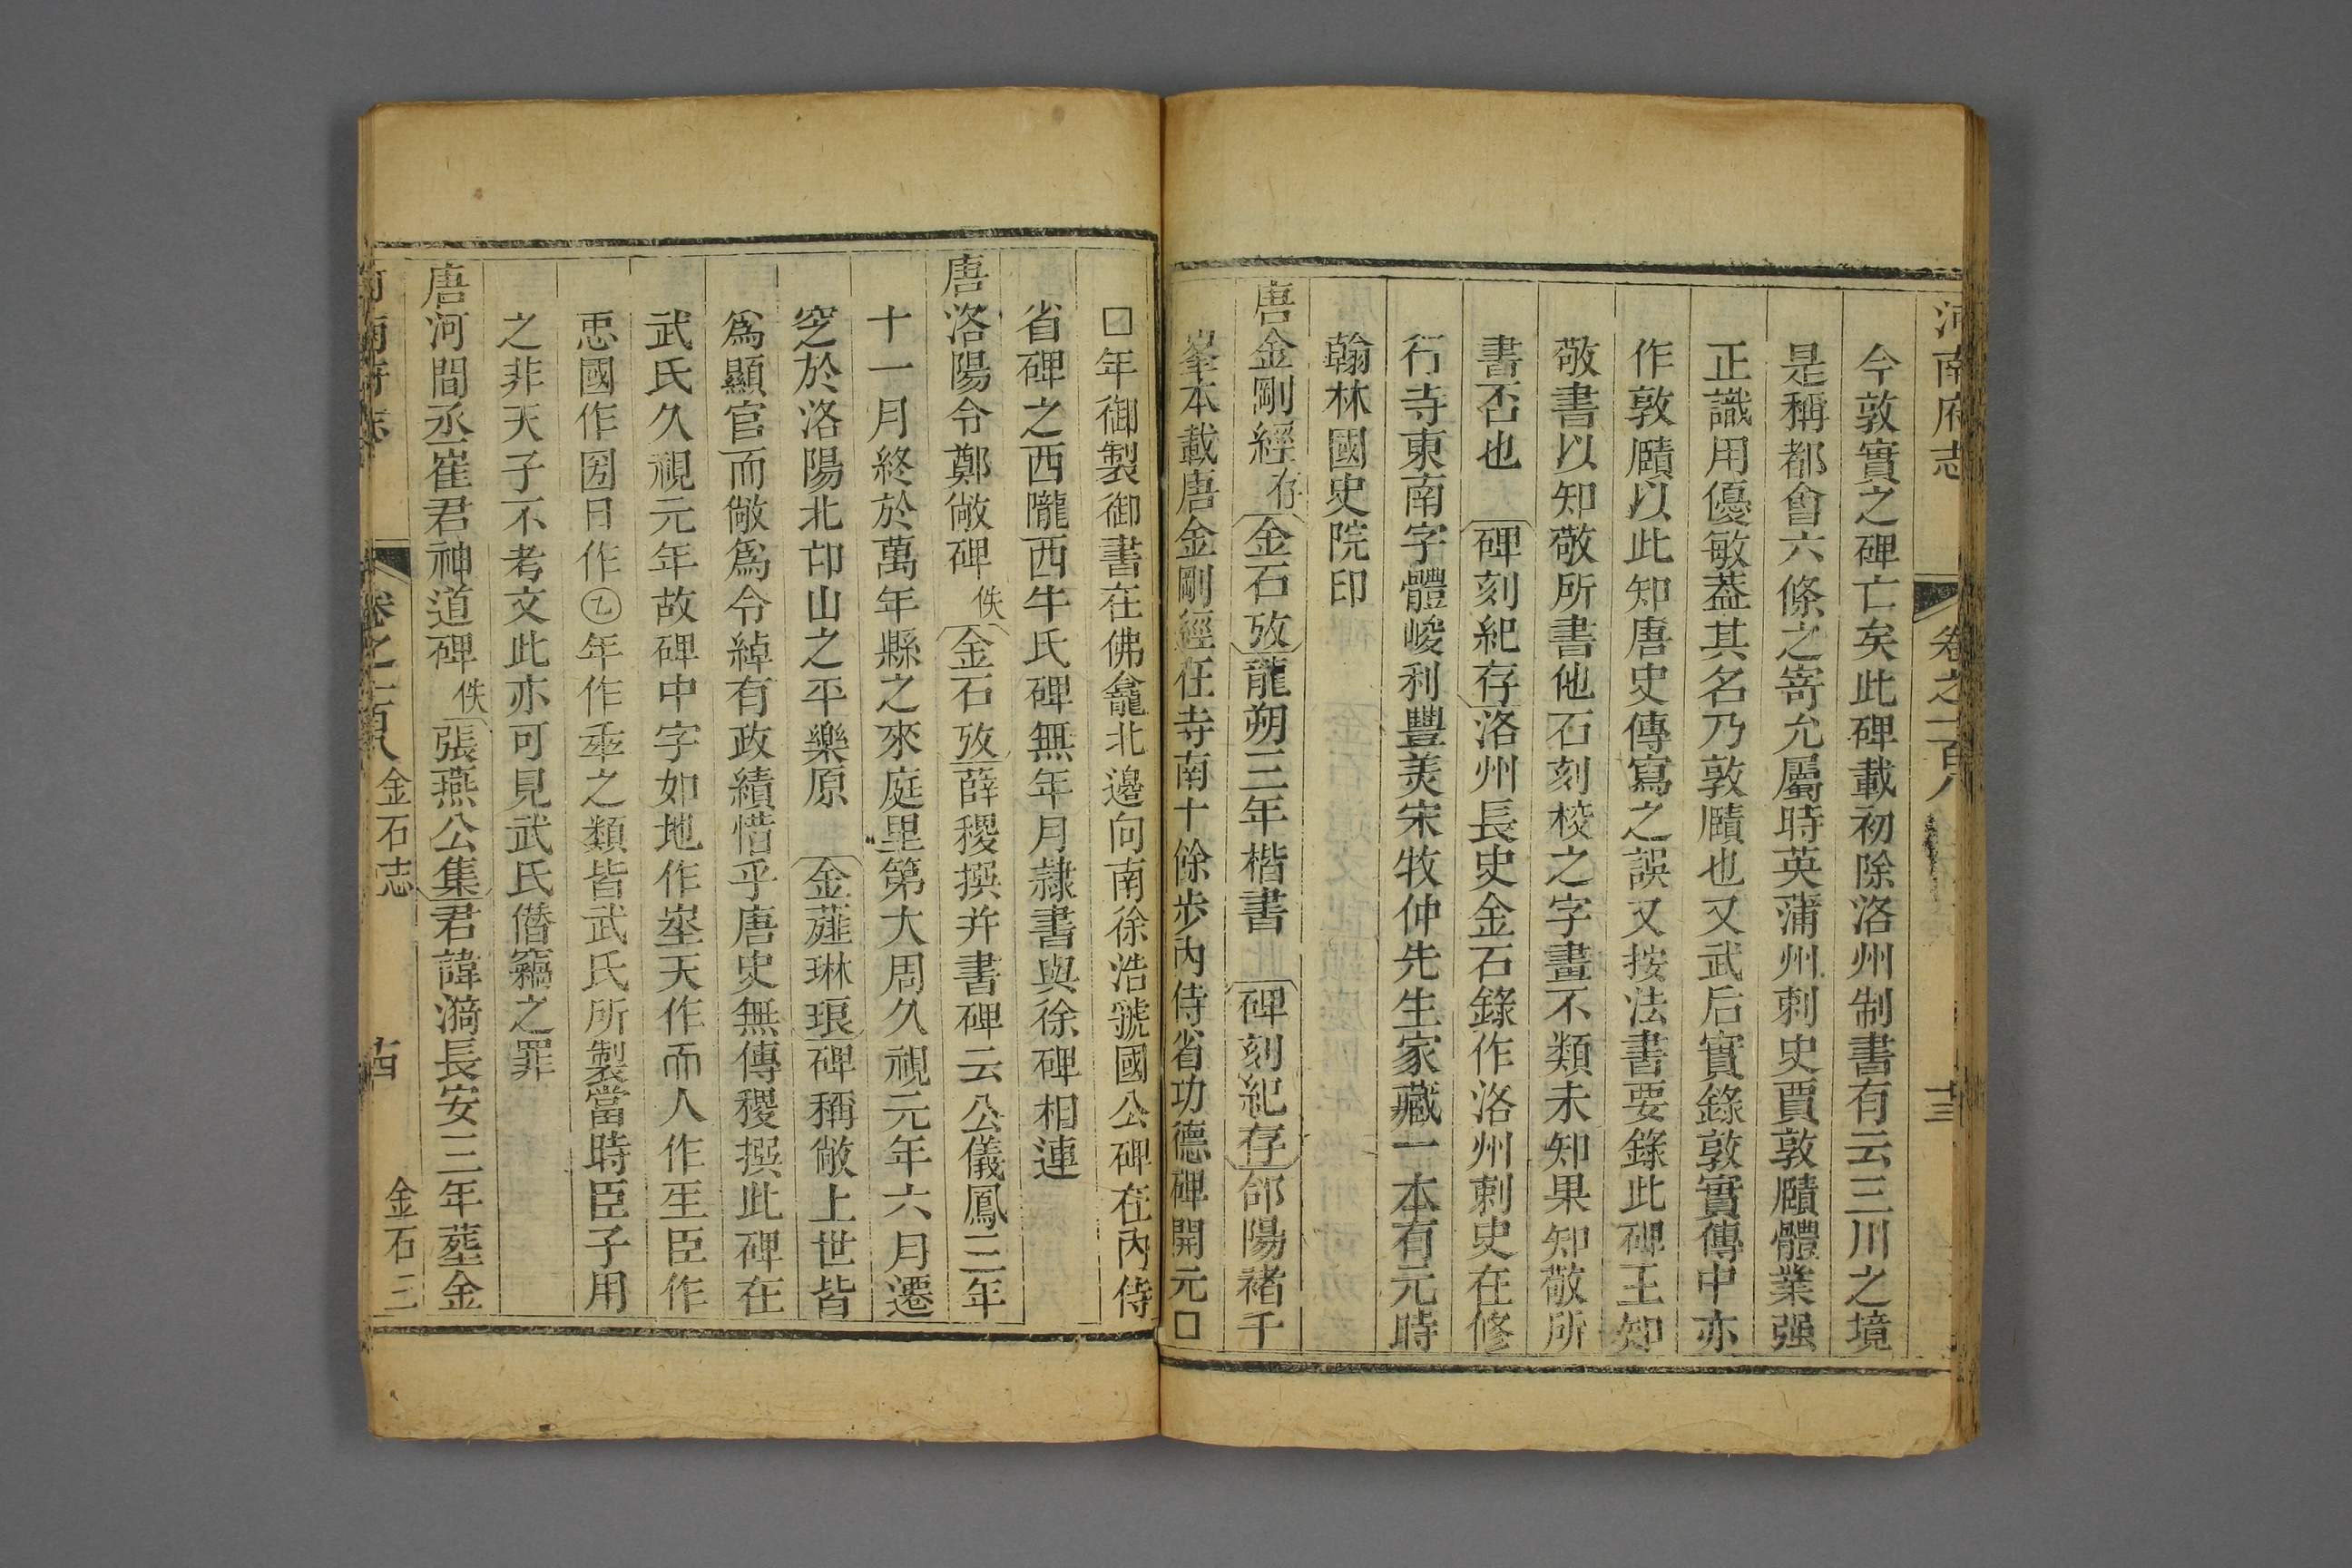 河南府志 卷之一百八 十三
今敦實之碑亡矣此碑載初除洛州制書有云三川之境
是稱都會六條之寄允屬時英蒲州刺史賈敦賾體業强
正識用優敏葢其名乃敦賾也又武后實錄敦實傳中亦
作敦賾以此知唐史傳寫之誤又按法書要錄此碑王知
敬書以知敬所書他石刻校之字畫不類未知果知敬所
書否也 碑刻紀存洛州長史金石錄作洛州刺史在修
行寺東南字體峻利豐美宋牧仲先生家藏一本有元時
翰林國史院印
唐金剛經存金石攷龍朔三年楷書 碑刻紀存郃陽褚千
峯本載唐金剛經在寺南十餘步內侍省功德碑開元□
□年御製御書在佛龕北邊向南徐浩虢國公碑在內侍
省碑之西隴西牛氏碑無年月隷書與徐碑相連
唐洛陽令鄭敞碑佚金石攷薛稷撰并書碑云公儀鳳三年
十一月終於萬年縣之來庭里第大周久視元年六月遷
窆於洛陽北邙山之平樂原 金薤琳琅碑稱敞上世皆
爲顯官而敞爲令綽有政績惜乎唐史無傳稷撰此碑在
武氏久視元年故碑中字如地作埊天作而人作𤯔臣作
𢘑國作圀日作㔔年作𠡦之類皆武氏所製當時臣子用
之非天子不考文此亦可見武氏僭竊之罪
唐河間丞崔君神道碑佚張燕公集君諱漪長安三年葬金
河南府志 卷之一百八 金石志 古 金石三